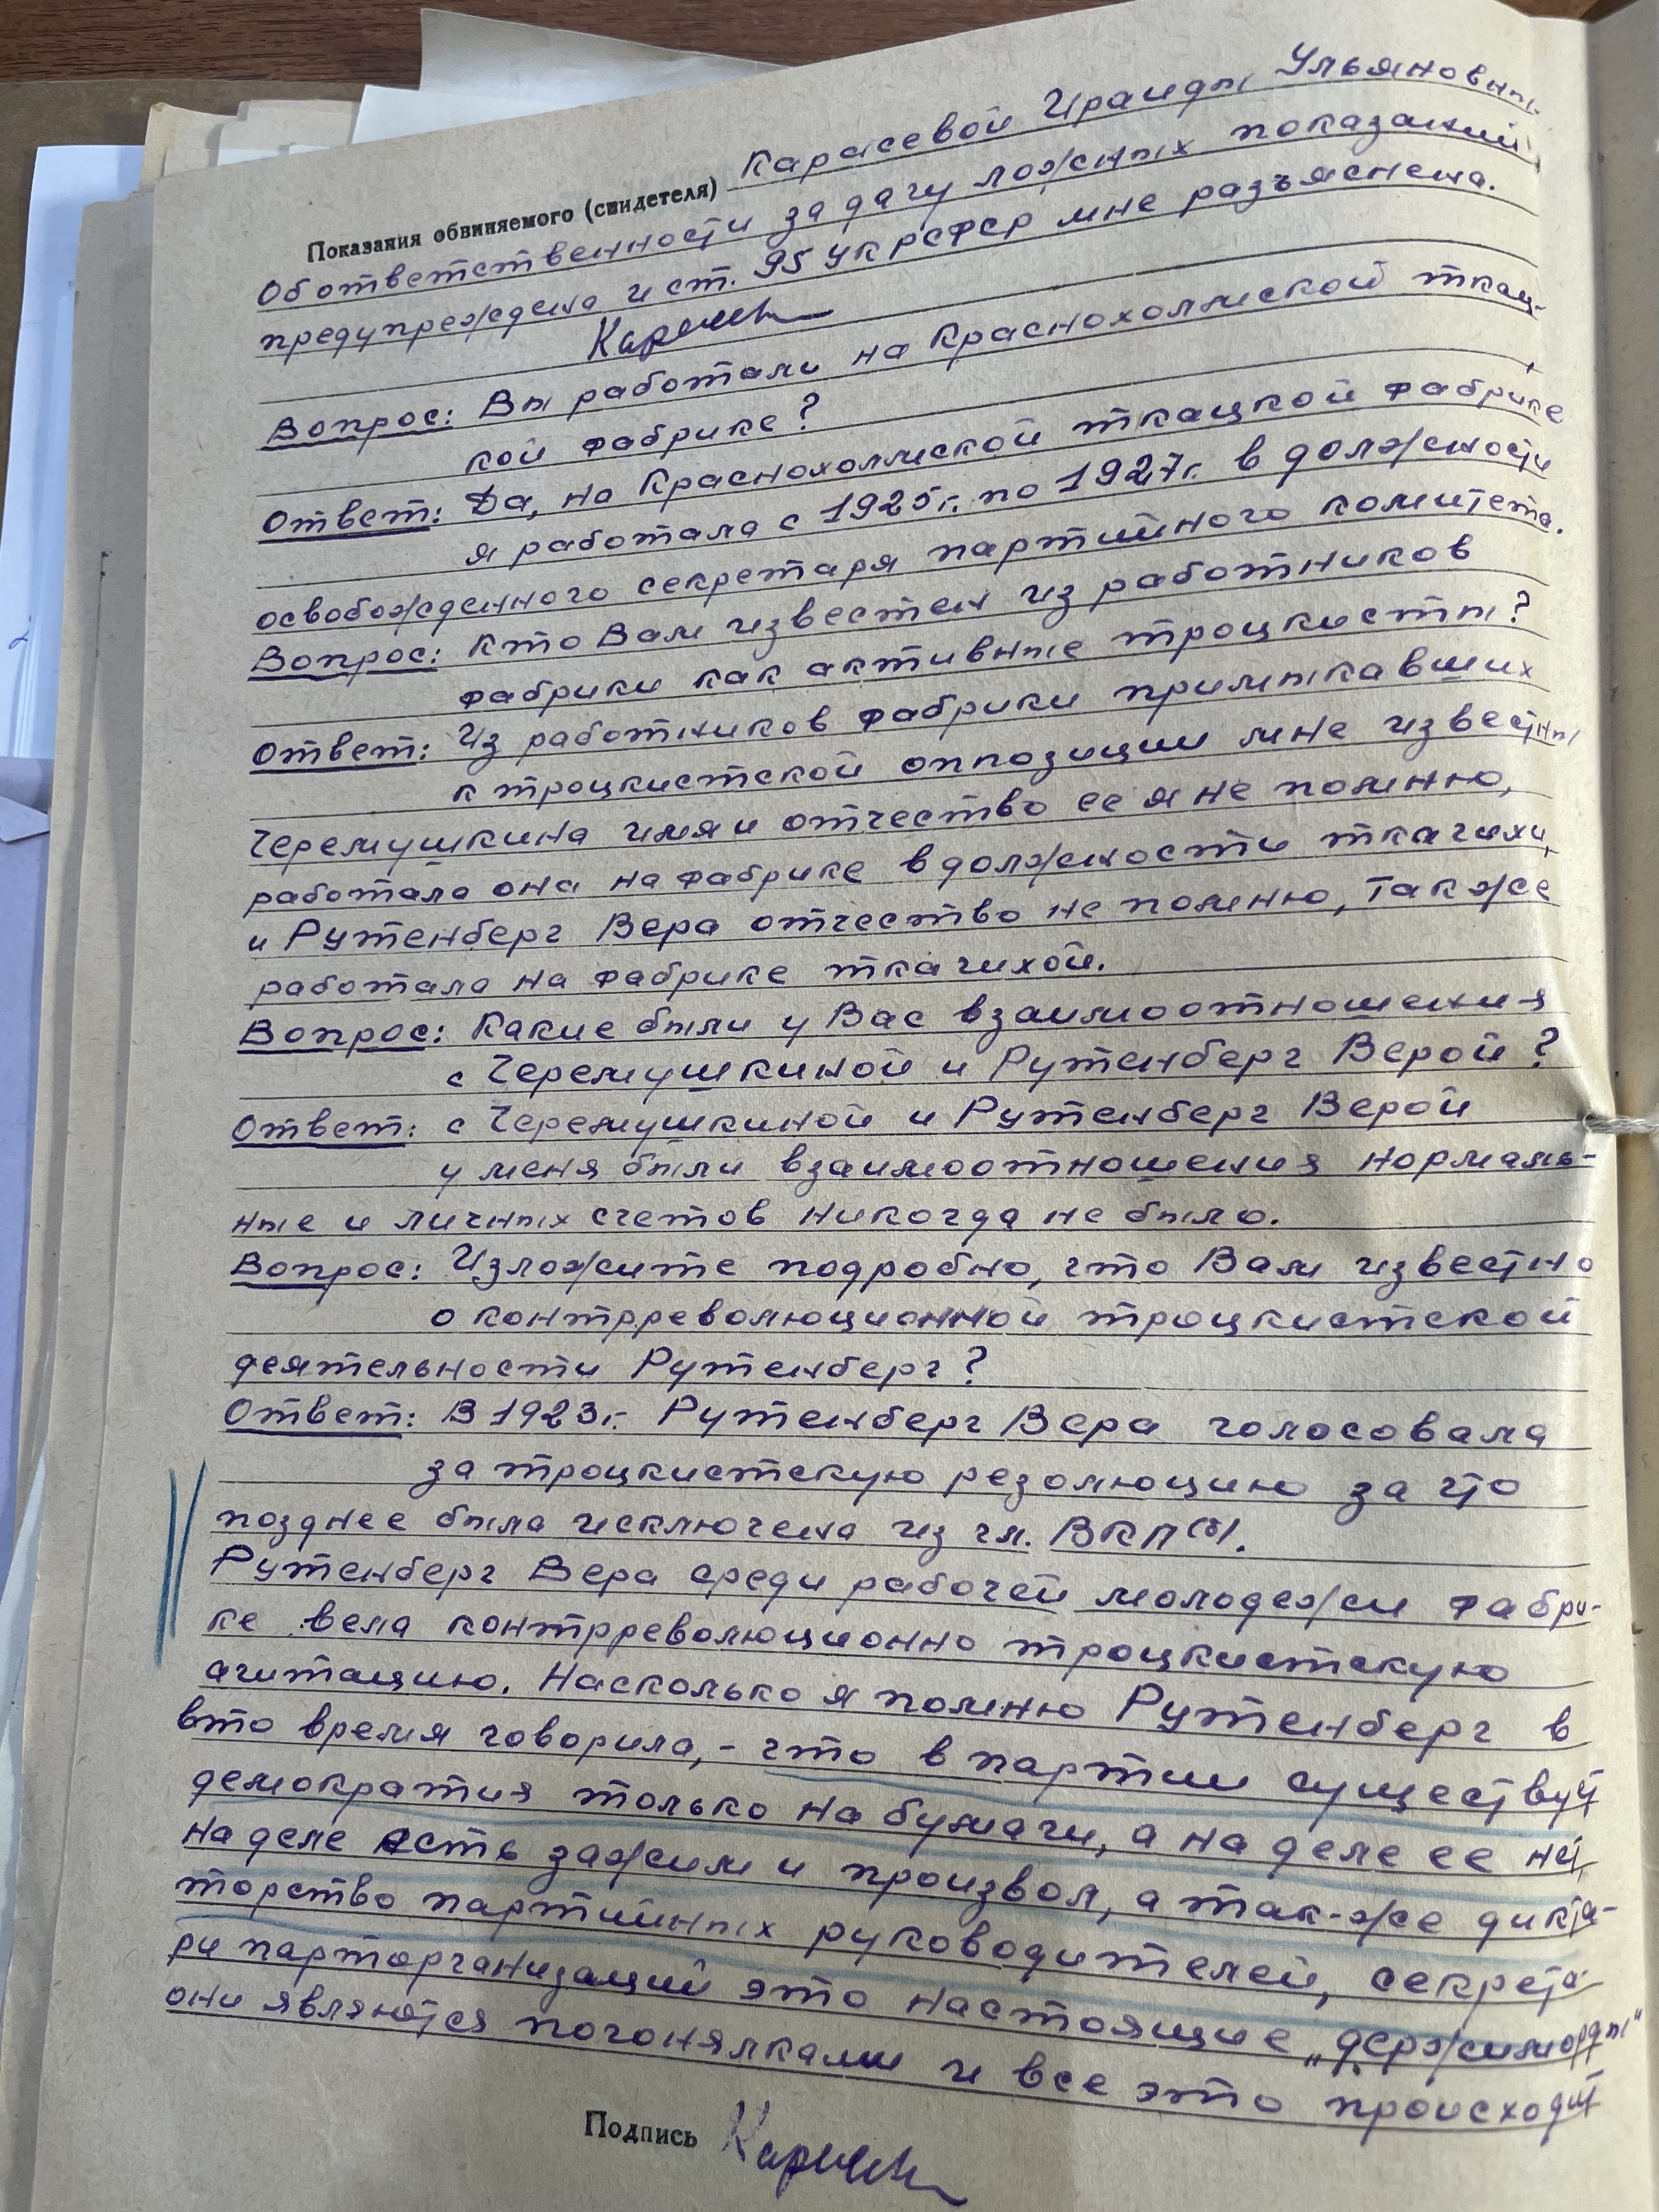 Показания обвиняемого (свидетеля) Карасевой Ираиды Ульяновны
Об ответственности за дачу ложных показаний
предупреждена и ст. 95 УК РСФСР мне разъяснена.
Вопрос: Вы работали на Краснохолмской ткац-
кой фабрике?
Ответ: Да, на Краснохолмской ткацкой фабрике
я работала с 1925г. по 1927г. в должности
освобожденного секретаря партийного комитета.
Вопрос: Кто Вам известен из работников
фабрики как активные троцкисты?
Ответ: Из работников фабрики примыкавших
к троцкистской оппозиции мне известны
Черемушкина имя и отчество ее я не помню,
работала она на фабрике в должности ткачихи,
и Рутенберг Вера отчество не помню, также
работала на фабрике ткачихой.
Вопрос: Какие были у Вас взаимоотношения
с Черемушкиной и Рутенберг Верой?
Ответ: с Черемушкиной и Рутенберг Верой
у меня были взаимоотношения нормаль-
ные и личных счетов никогда не было.
Вопрос: Изложите подробно, что Вам известно
о контрреволюционной троцкистской
деятельности Рутенберг?
Ответ: В 1923г. Рутенберг Вера голосовала
за троцкистскую резолюцию за что
позднее была исключена из чл. ВКП(б).
Рутенберг Вера среди рабочей молодежи фабри-
ке вела контрреволюционно троцкистскую
агитацию. Насколько я помню Рутенберг в
это время говорила, - что в партии существует
демократия только на бумаги, а на деле ее нет,
на деле есть зажим и произвол, а так-же дикта-
торство партийных руководителей, секрета-
ри парторганизаций это настоящие „держиморды"
они являются погонялками и все это происходит
Подпись